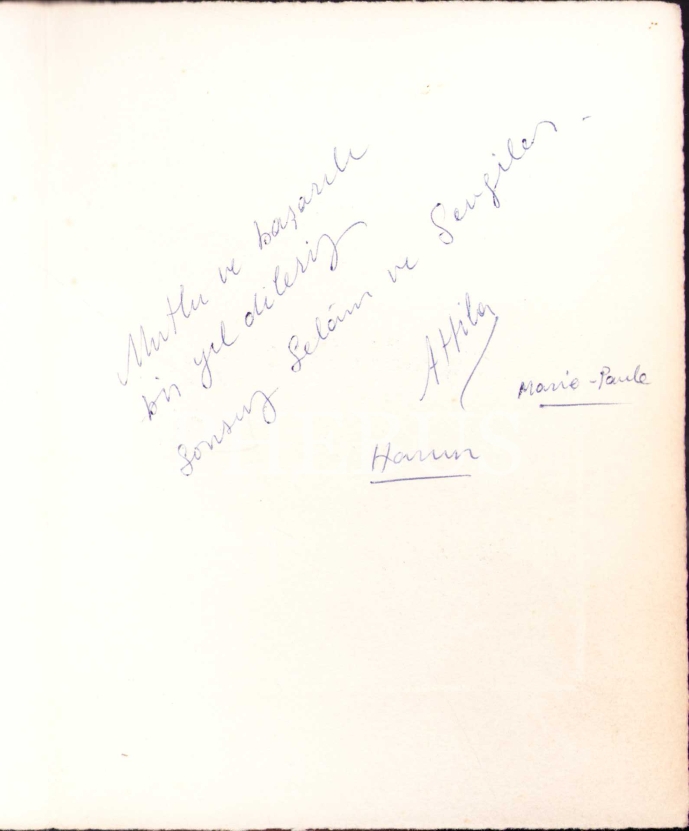 Mutlu ve başarılı
bir yıl dileriz
Sonsuz Selâm ve Sevgiler -
Attila
Marie-Paule
Harun